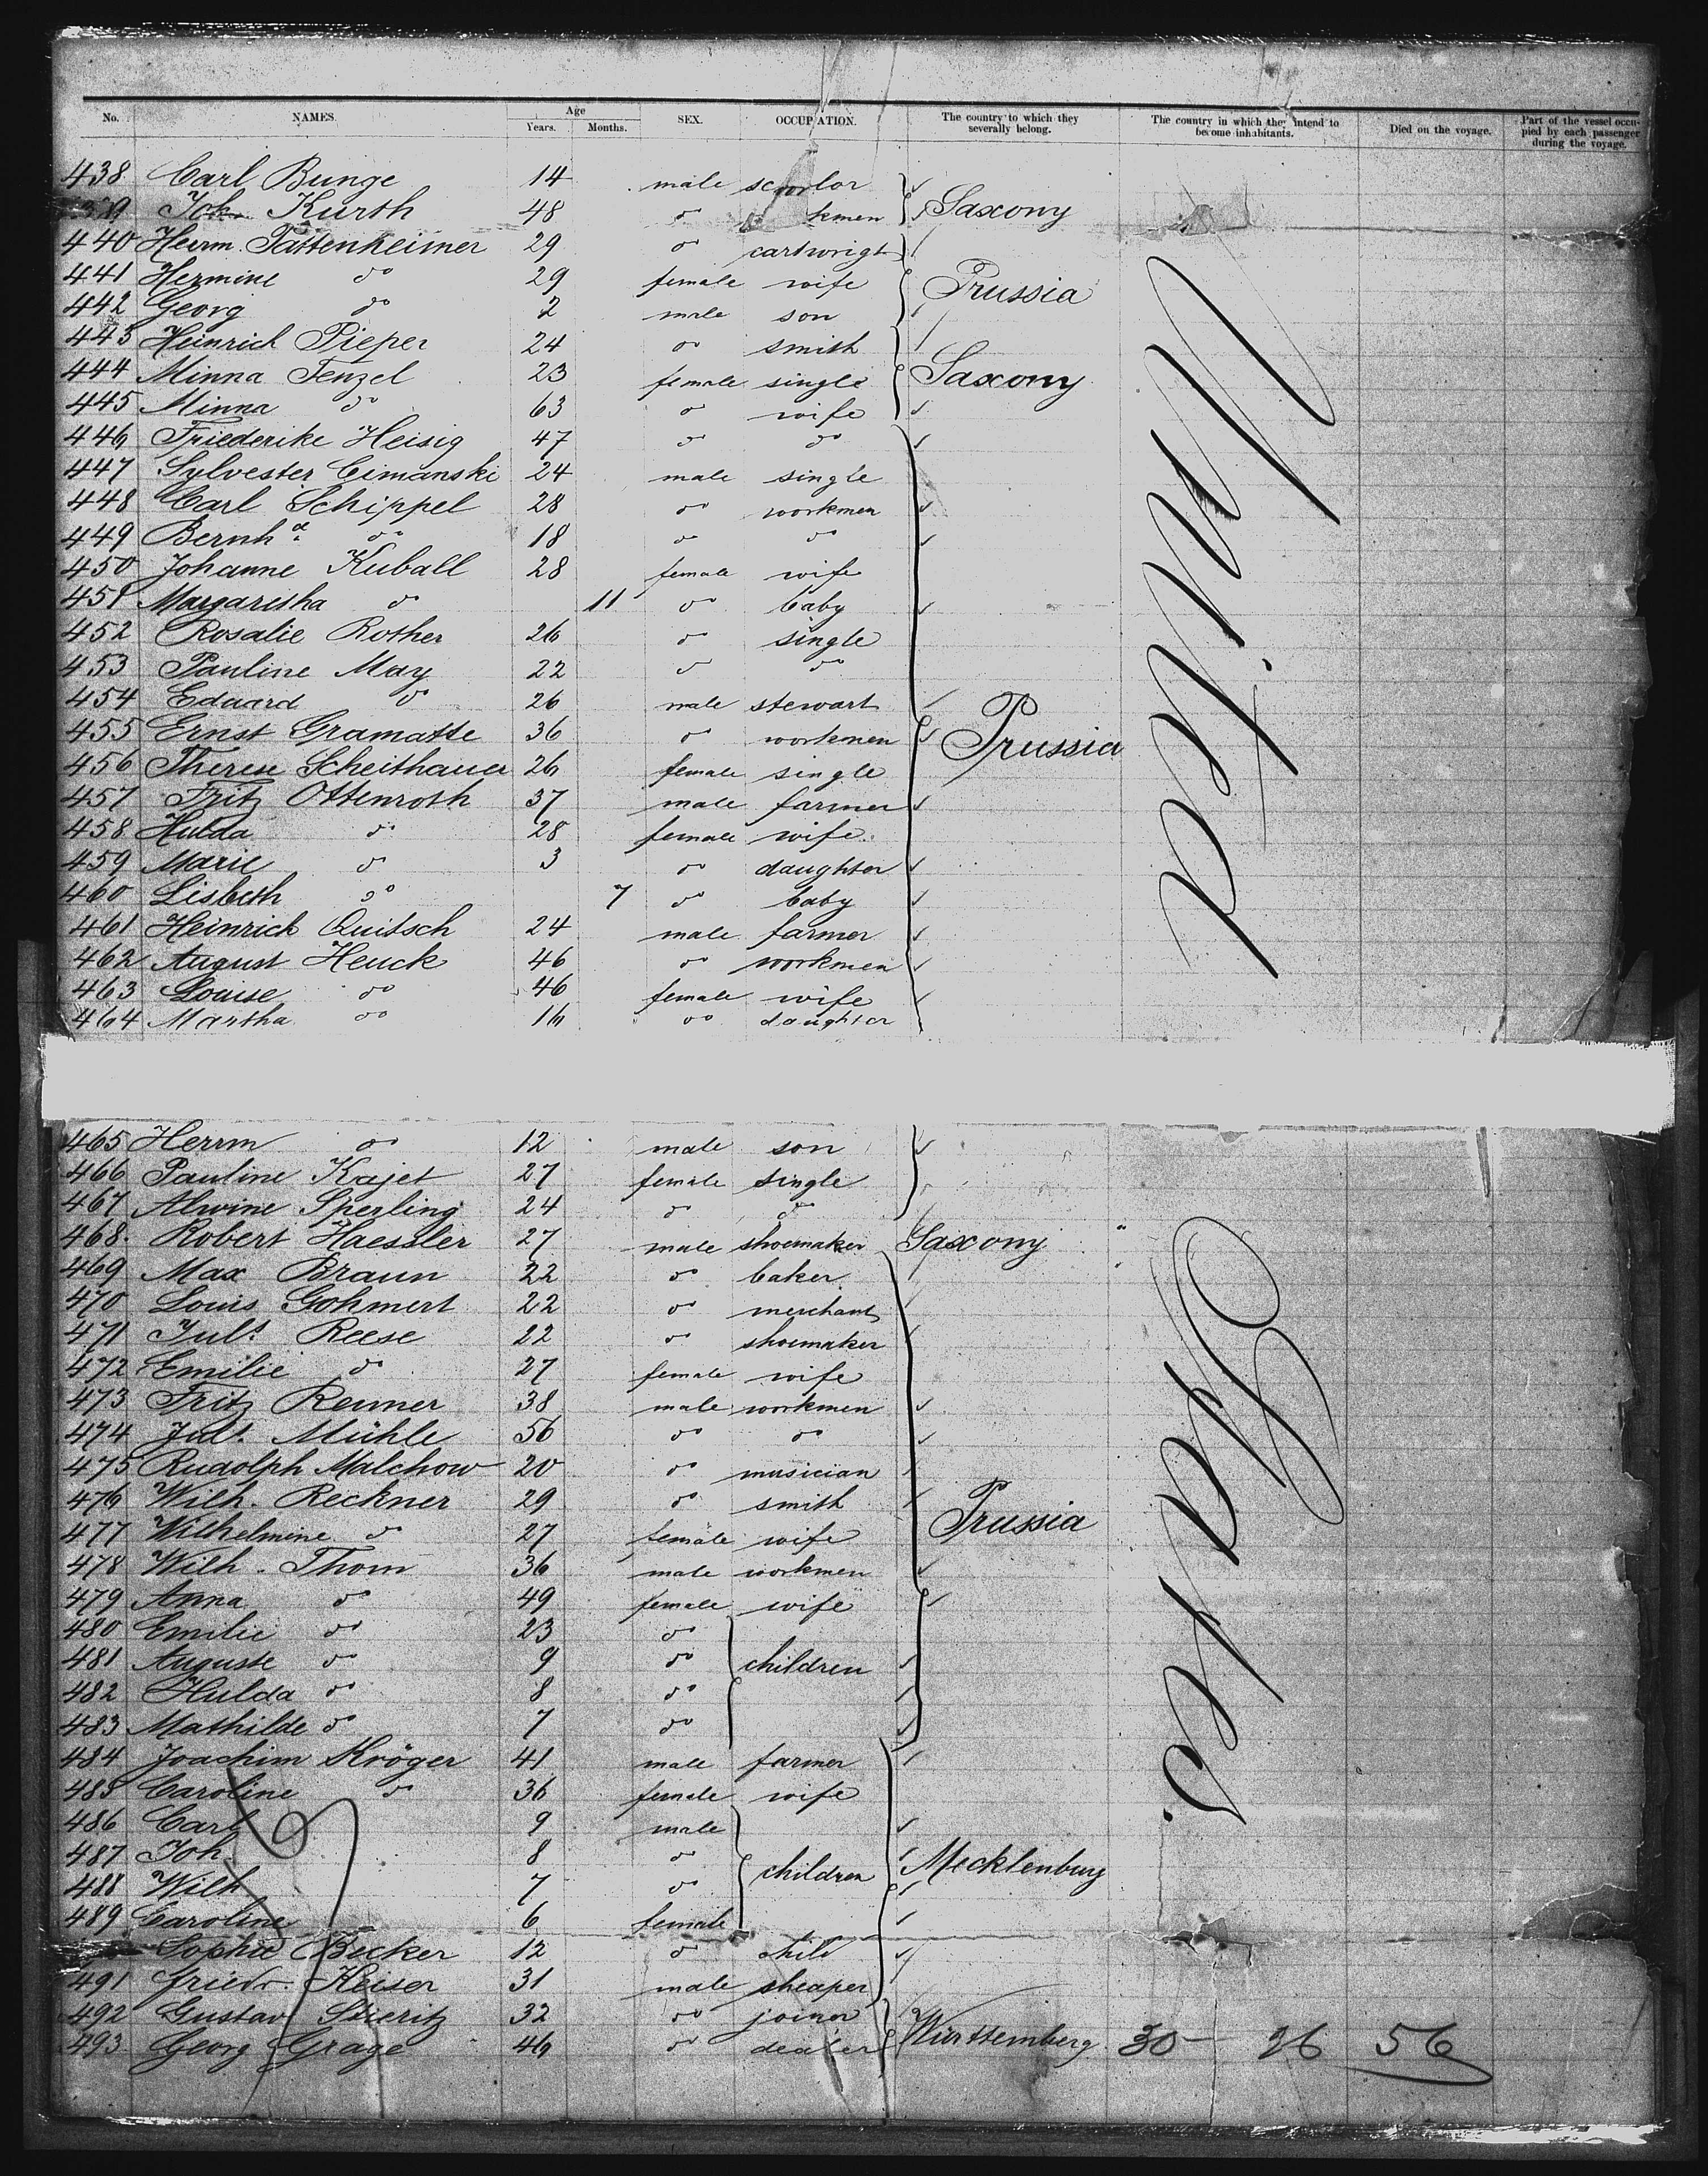 No. NAMES. Age Years. Months. SEX. OCCUPATION. The country to which they severally belong. The country in which they intend to become inhabitants. Died on the voyage. Part of the vessel occupied by each passenger during the voyage.
438 Carl Bunge 14 male scoolor
Joh. Kurth 48 do kmen Saxony
440 Herrm. Pattenheimer 29 do cartwrigt
441 Hermine do 29 female wife Prussia
442 Georg do 2 male son
443 Heinrich Pieper 24 do smith
444 Minna Tenzel 23 female single Saxony
445 Minna do 63 do wife
446 Friederike Heisig 47 do do
447 Sylvester Cimanski 24 male single
448 Carl Schippel 28 do workmen
449 Bernhd. do 18 do do
450 Johanne Kuball 28 female wife
451 Margaretha do 11 do baby
452 Rosalie Rother 26 do single
453 Pauline May 22 do do
454 Eduard do 26 male stewart
455 Ernst Gramatte 36 do workmen Prussia
456 Therese Scheithauer 26 female single
457 Fritz Ottenroth 37 male farmer
458 Hulda do 28 female wife
459 Marie do 3 do daughter
460 Lisbeth do 7 do baby
461 Heinrich Quitsch 24 male farmer
462 August Heuck 46 do workmen
463 Louise do 46 female wife
464 Martha do 16 do daughter
United
465 Herrm do 12 male son
466 Pauline Kajet 27 female single
467 Alwine Sperling 24 do do
468. Robert Haessler 27 male shoemaker Saxony
469 Max Braun 22 do baker
470 Louis Gohmert 22 do merchant
471 Juls. Reese 22 do shoemaker
472 Emilie do 27 female wife
473 Fritz Remer 38 male workmen
474 Juls. Mühle 56 do do
475 Rudolph Malchow 20 do musician
476 Wilh. Reckner 29 do smith Prussia
477 Wilhelmine do 27 female wife
478 Wilh. Thom 36 male workmen
479 Anna do 49 female wife
480 Emilie do 23 do
481 Auguste do 9 do children
482 Hulda do 8 do
483 Mathilde do 7 do
484 Joachim Kröger 41 male farmer
485 Caroline do 36 female wife
486 Carl 9 male
487 Joh. 8 do children Mecklenburg
488 Wilh 7 do
489 Caroline 6 female
Sophie Becker 12 do child
491 Friedr. Keiser 31 male sheaper
492 Gustav Stieritz 32 do joiner
493 Georg Grage 46 do dealer Württemberg 30 26 56
States